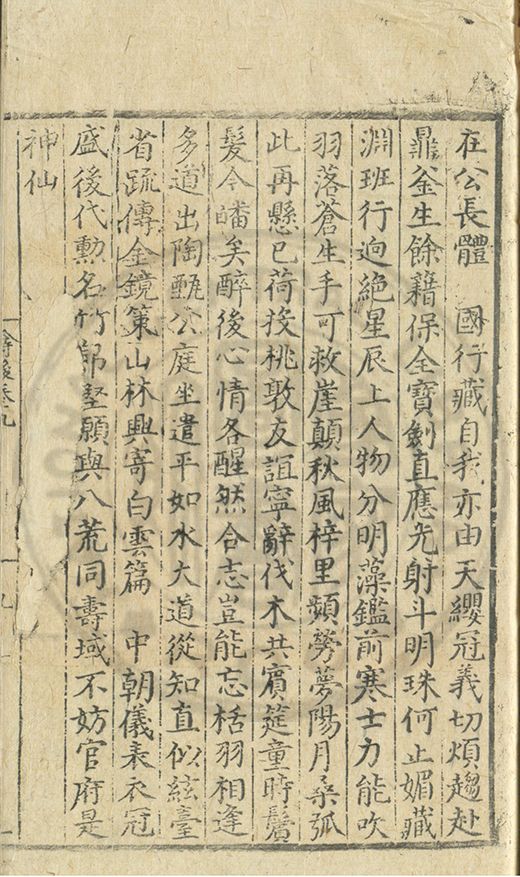 在公長體　國行藏自我亦由天纓冠義切煩趨赴
鼎釜生餘藉保全寶劍直應光射斗明珠何止媚藏
淵班行迥絶星辰上人物分明藻鑑前寒士力能吹
羽落蒼生手可救崖顛秋風梓里頻勞夢陽月桑弧
此再懸已荷投桃敦友誼寧辭伐木共賓筵童時鬢
髮今皤矣醉後心情各醒然合志豈能忘栝羽相逢
多道出陶甄公庭坐遣平如水大道從知直似絃臺
省疏傳金鏡策山林興寄白雲篇　中朝儀表衣冠
盛後代勳名竹帛堅願與八荒同壽域不妨官府是
神仙